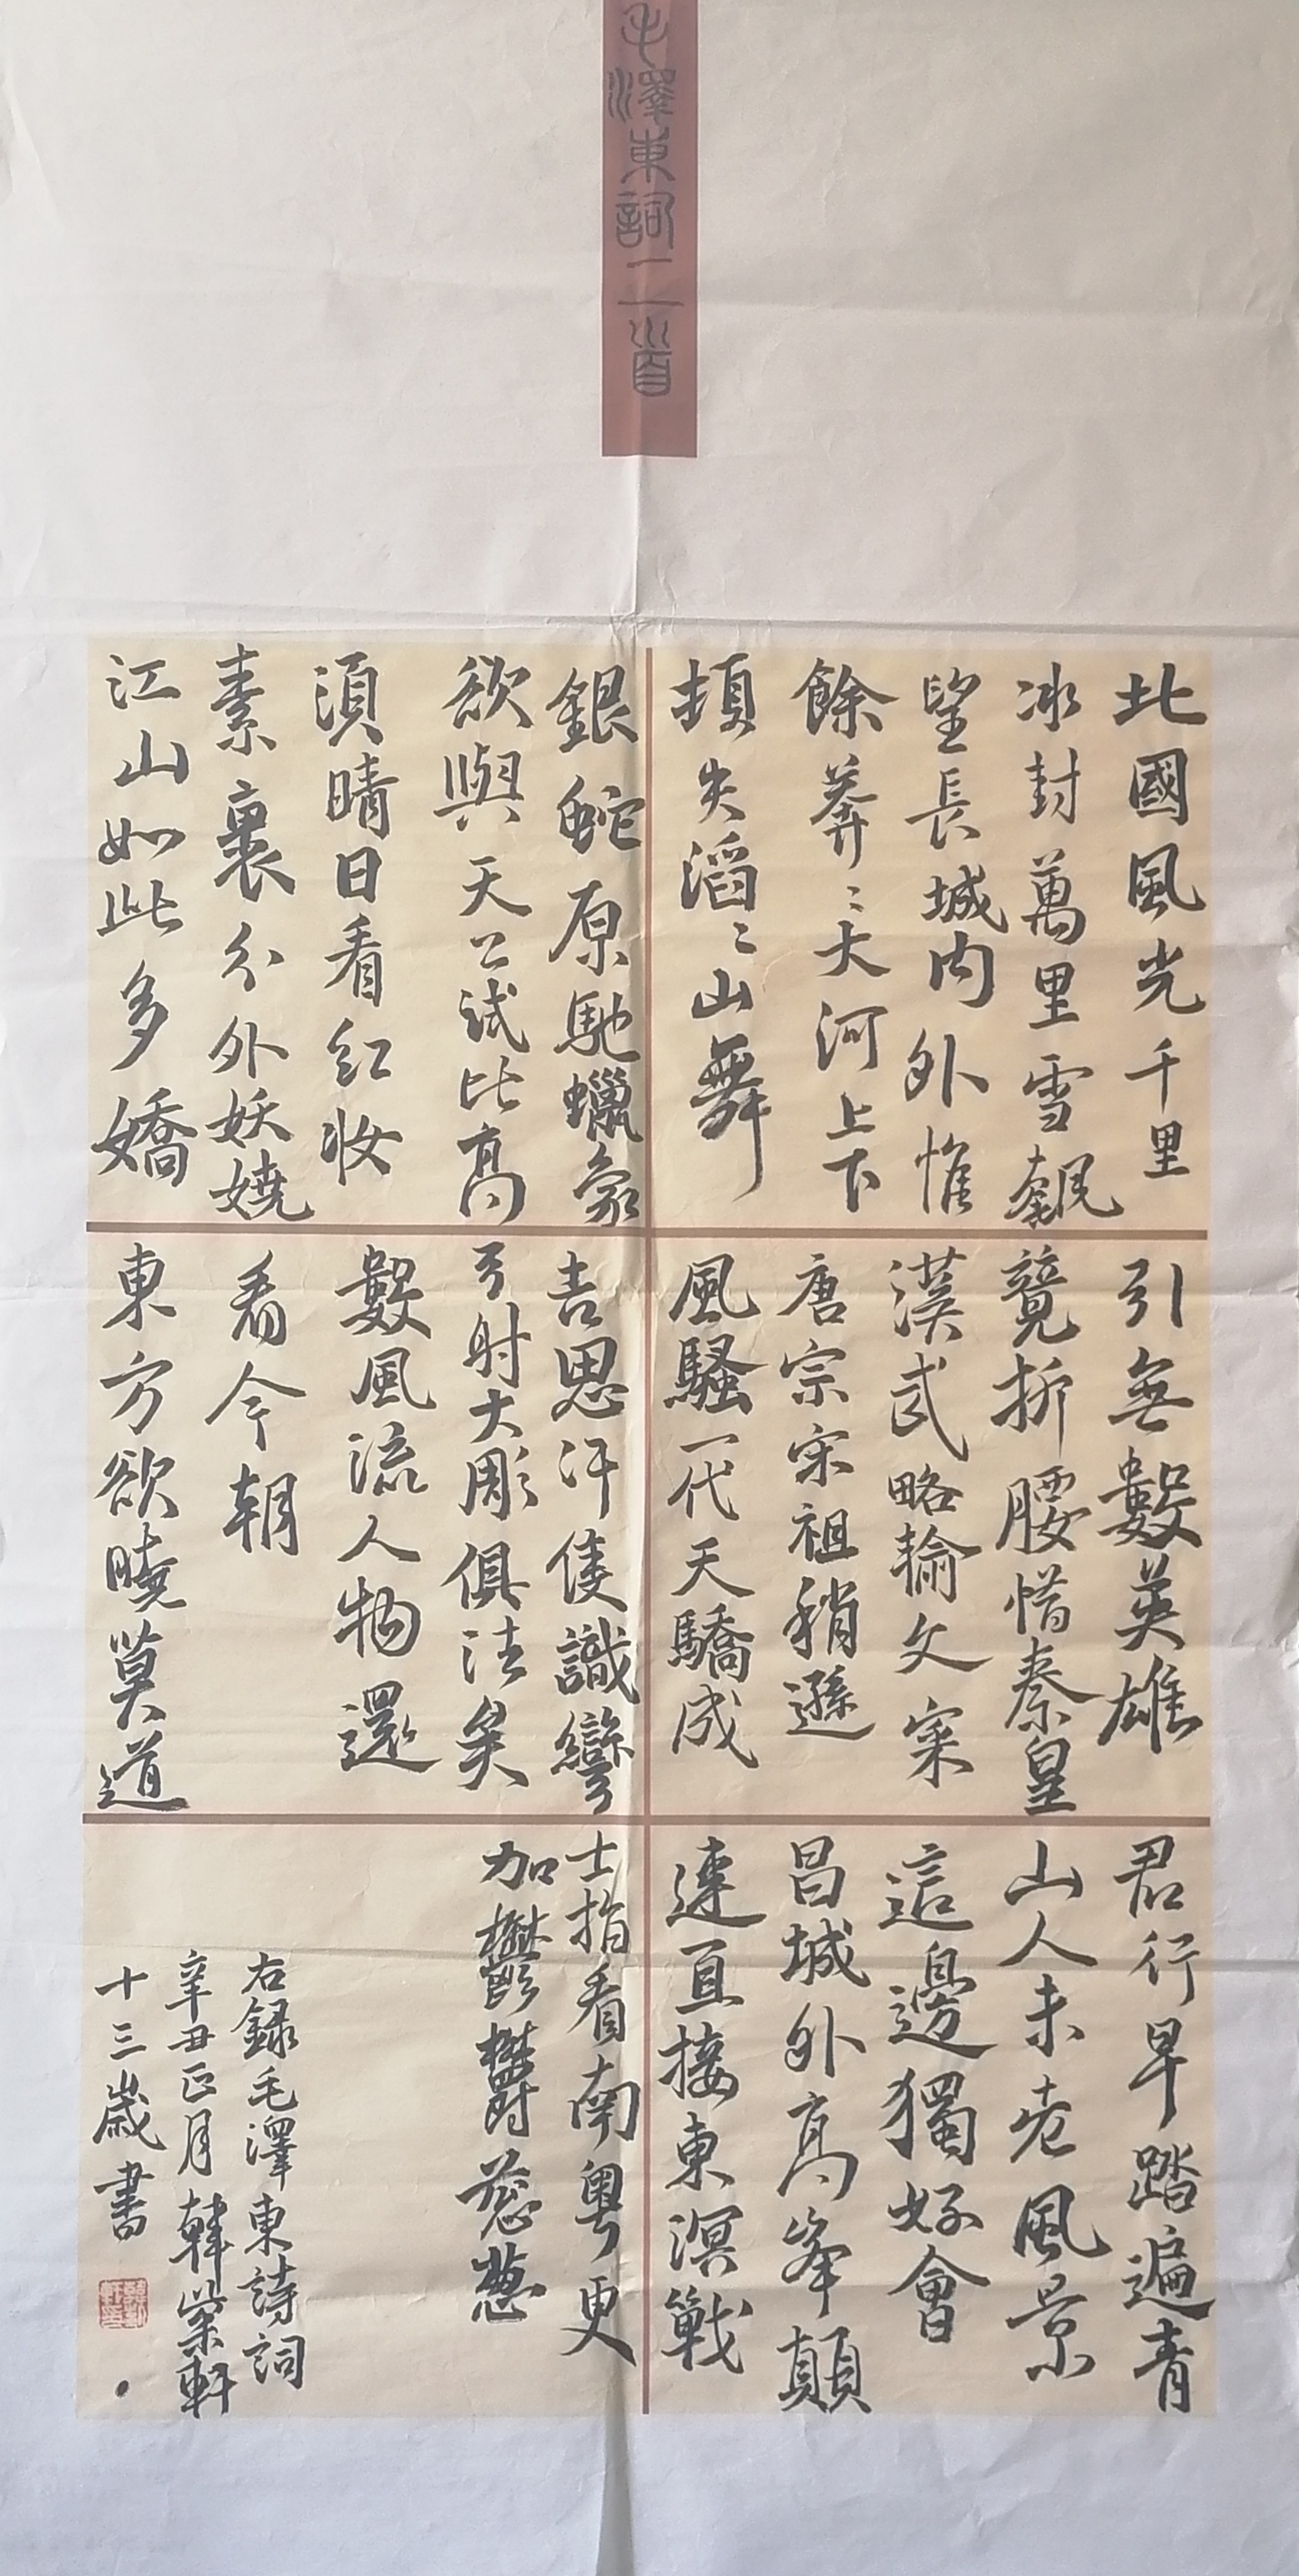 毛澤東詞二首
北國風光千里
冰封萬里雪飄
望長城内外惟
餘莽〻大河上下
頓失滔〻山舞
銀蛇原馳蠟象
欲與天公試比高
須晴日看紅妝
素裹分外妖嬈
江山如此多嬌
引無數英雄
競折腰惜秦皇
漢武略輸文寀
唐宗宋祖稍遜
風騷一代天驕成
吉思汗僅識彎
弓射大彫俱往矣
數風流人物還
看今朝
東方欲曉莫道
君行早踏遍青
山人未老風景
這邊獨好會
昌城外高峯顛
連直接東溟戰
士指看南粵更
加鬱鬱蔥蔥
右録毛澤東詩詞
辛丑正月韓崇軒
十三歲書